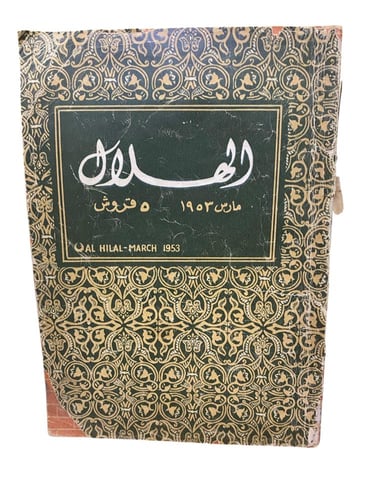 الهلال
مارس ١٩٥٣ ٥ قروش
AL HILAL-MARCH 1953